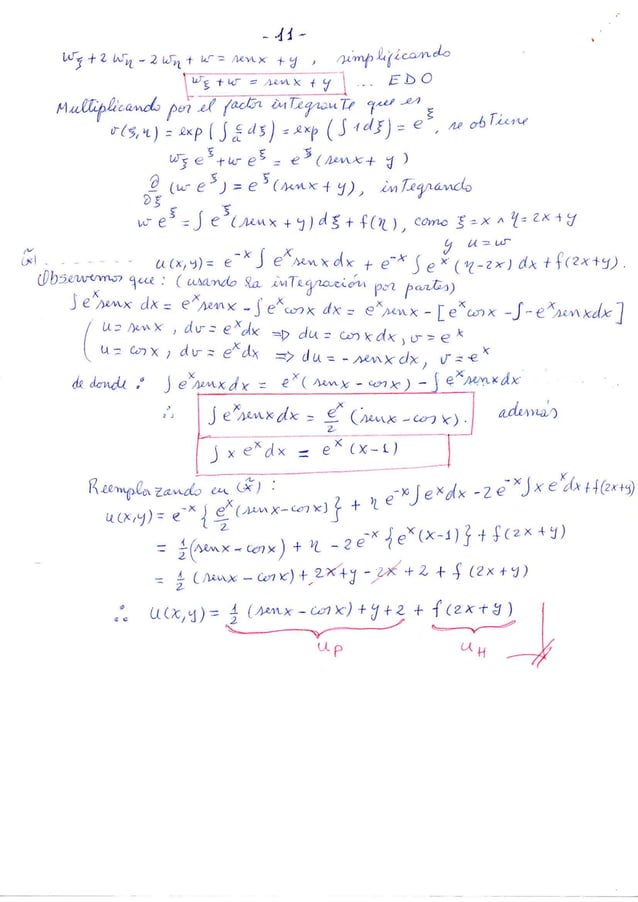 - 11 -
wξ + 2 wη - 2wη + w = senx + y , simplificando
wξ + w = senx + y ... EDO
Multiplicando por el factor integrante que es
v(ξ,η) = exp(∫ c/a dξ) = exp(∫ 1dξ) = e^ξ, se obtiene
wξ e^ξ + w e^ξ = e^ξ (senx + y)
∂/∂ξ (w e^ξ) = e^ξ (senx + y), integrando
w e^ξ = ∫ e^ξ (senx + y) dξ + f(η), como ξ = x ∧ η = 2x + y
y u = w
(x̃) - - - - - - - u(x,y) = e^-x ∫ e^x senx dx + e^-x ∫ e^x (η - 2x) dx + f(2x+y).
Observemos que: (usando la integración por partes)
∫ e^x senx dx = e^x senx - ∫ e^x cosx dx = e^x senx - [e^x cosx - ∫ - e^x senx dx]
( u = senx , dv = e^x dx ⇒ du = cosx dx, v = e^x
u = cosx , dv = e^x dx ⇒ du = - senx dx, v = e^x
de donde : ∫ e^x senx dx = e^x (senx - cosx) - ∫ e^x senx dx
∴ ∫ e^x senx dx = e^x/2 (senx - cosx). además
∫ x e^x dx = e^x (x-1)
Reemplazando en (x̃) :
u(x,y) = e^-x { e^x/2 (senx - cosx) } + η e^-x ∫ e^x dx - 2e^-x ∫ x e^x dx + f(2x+y)
= 1/2 (senx - cosx) + η - 2e^-x { e^x (x-1) } + f(2x+y)
= 1/2 (senx - cosx) + 2x + y - 2x + 2 + f(2x+y)
∴ u(x,y) = 1/2 (senx - cosx) + y + 2 + f(2x+y)
uP uH